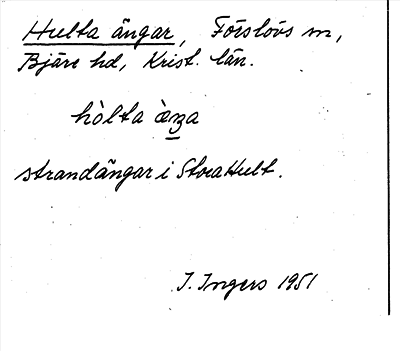 Hulta ängar, Förslövs m,
Bjäre hd, Krist. län.
hòlta àʒa
strandängar i Stora Hult.
I. Ingers 1951